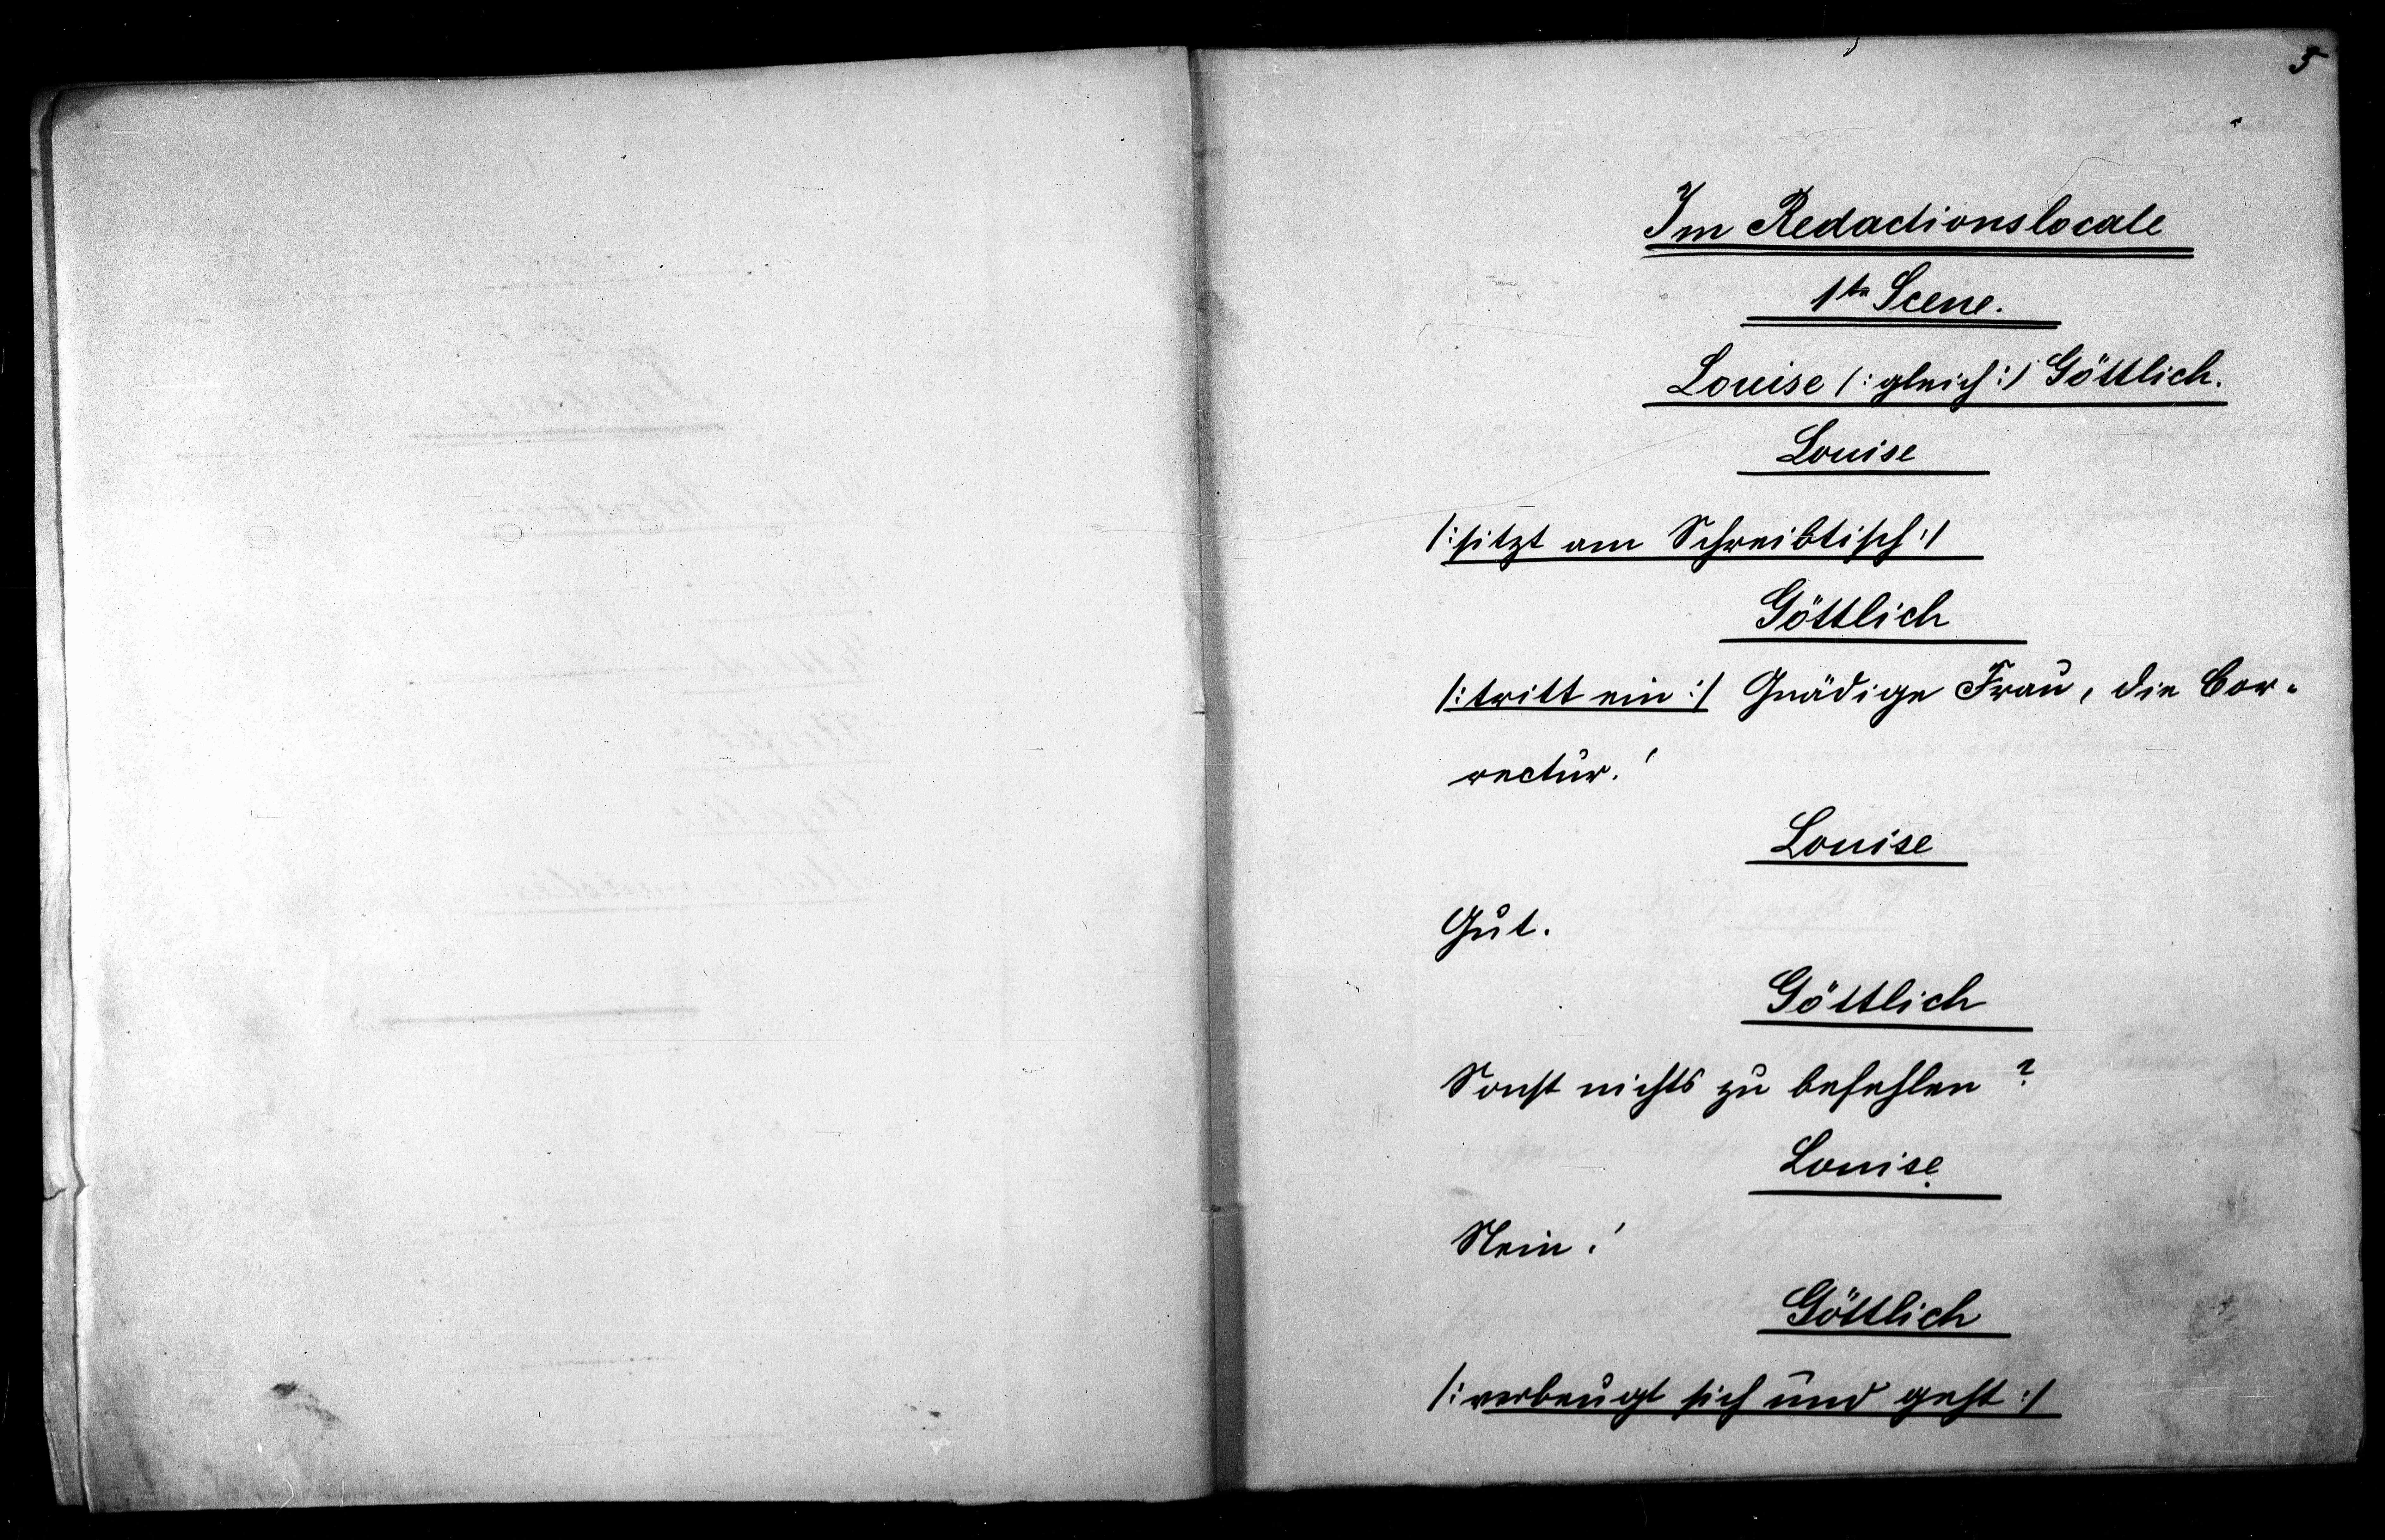 5
Im Redactionslocale
1te Scene.
Louise /: gleich :/ Göttlich.
Louise
/: sitzt am Schreibtisch :/
Göttlich
/: tritt ein :/ Gnädige Frau, die Cor-
rectur!
Louise
Gut.
Göttlich
Sonst nichts zu befehlen?
Louise
Nein!
Göttlich
/: verbeugt sich und geht :/